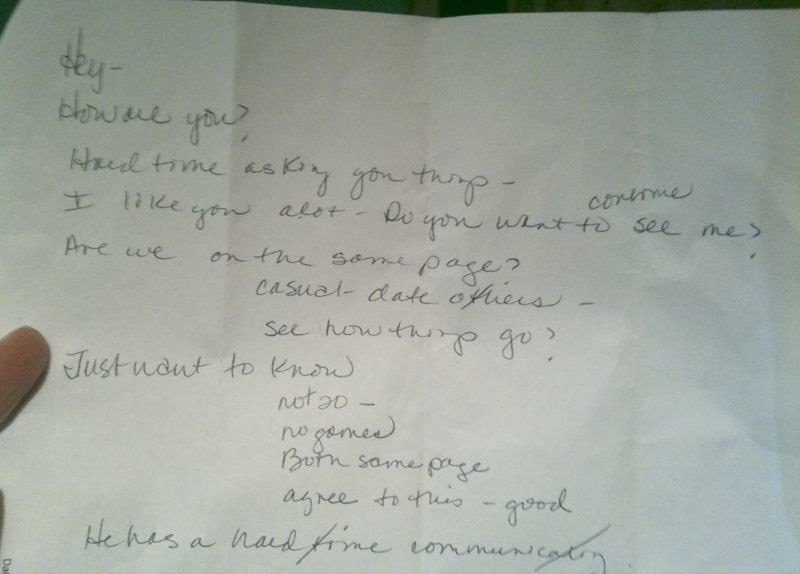 Hey-
How are you?
Hard time asking you things -
I like you alot - Do you want to continue see me?
Are we on the same page?
casual- date others -
see how things go?
Just want to know
not 20 -
no games
Both same page
agree to this - good
He has a hard time communicating.
Da